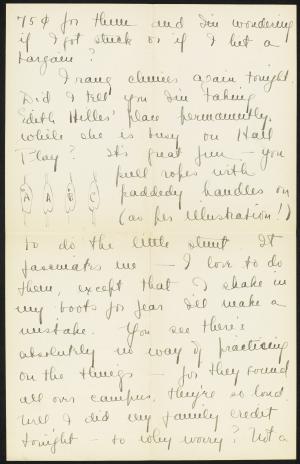 75¢ for them and I'm wondering
if I got stuck or if I hit a
bargain?
I rang chimes again tonight
Did I tell you I'm taking
Edith Hilles' place permanently,
while she is busy on Hall
Play? It's great fun – you
pull ropes with
A A B C
paddedy handles on
(as per illustration!)
to do the little stunt. It
fascinates me – I love to do
them, except that I shake in
my boots for fear I'll make a
mistake. You see there's
absolutely no way of practicing
on the things – for they sound
all over campus, they're so loud.
Well I did my family credit
tonight – so why worry? Not a